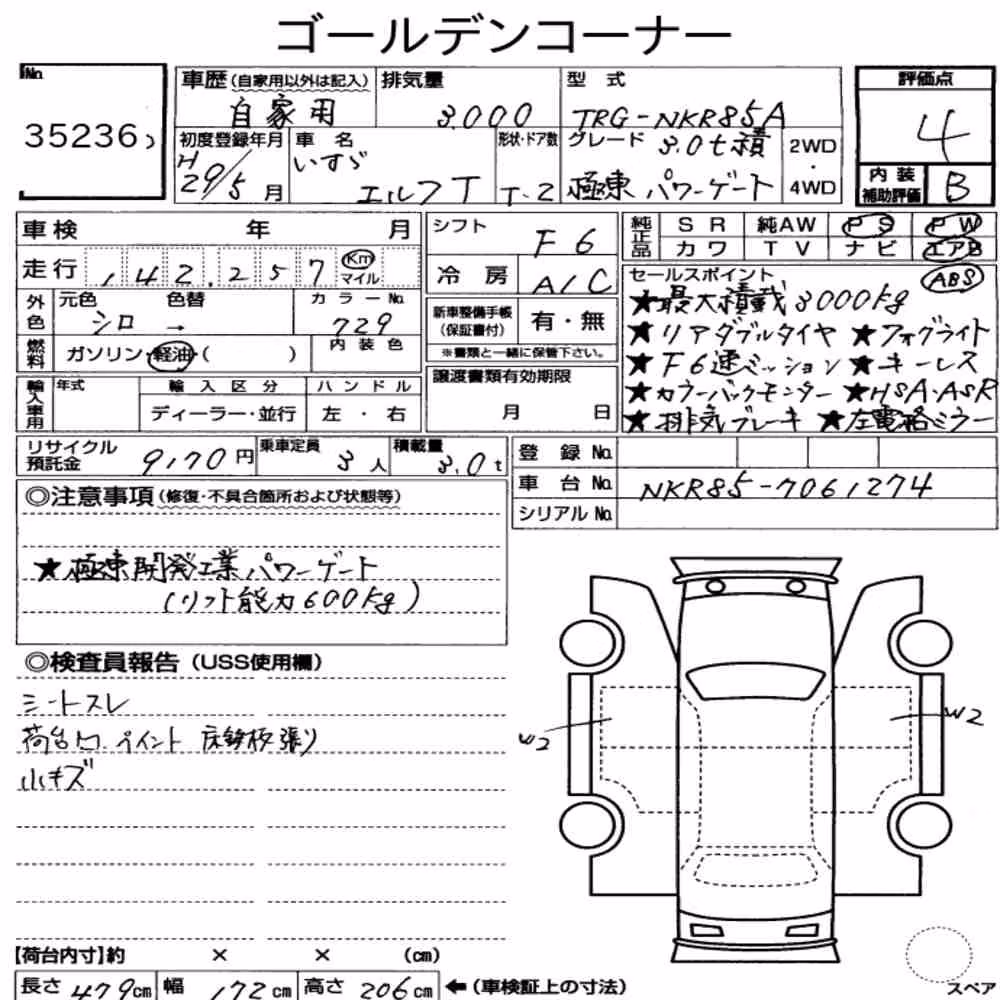 ゴールデンコーナー
No.
35236
車歴(自家用以外は記入) 自家用
排気量 3.000
型式 TRG-NKR85A
評価点 4
初度登録年月 H29/5月
車名 いすゞ エルフT
形状・ドア数 T-2
グレード 3.0t積 極東 パワーゲート
2WD・4WD
内装補助評価 B
車検 年 月
シフト F6
純正品 SR 純AW PS PW
カワ TV ナビ エアB
ABS
走行 142,257 Km マイル
冷房 A/C
セールスポイント
★最大積載3000kg
★リアダブルタイヤ ★フォグライト
★F6速ミッション ★キーレス
★カラーバックモニター ★HSA・ASR
★排気ブレーキ ★左電格ミラー
外色 元色 シロ → 色替 カラーNo. 729
新車整備手帳(保証書付) 有・無
※書類と一緒に保管下さい。
燃料 ガソリン・軽油( ) 内装色
譲渡書類有効期限 月 日
輸入車用 年式 輸入区分 ハンドル
ディーラー・並行 左・右
リサイクル預託金 9170円
乗車定員 3人
積載量 3.0t
登録No.
車台No. NKR85-7061274
シリアルNo.
◎注意事項(修復・不具合箇所および状態等)
★極東開発工業パワーゲート
(リフト能力600kg)
◎検査員報告(USS使用欄)
シートスレ
荷台 ペイント 床鉄板張り
小キズ
W2
W2
【荷台内寸】約 × × (cm)
長さ 479cm 幅 172cm 高さ 206cm ←(車検証上の寸法)
スペア